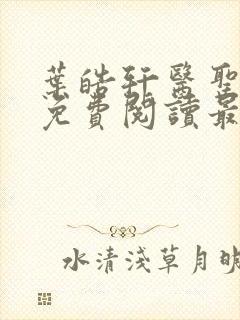 葉皓軒醫聖
免費閱讀最
水清淺草月映